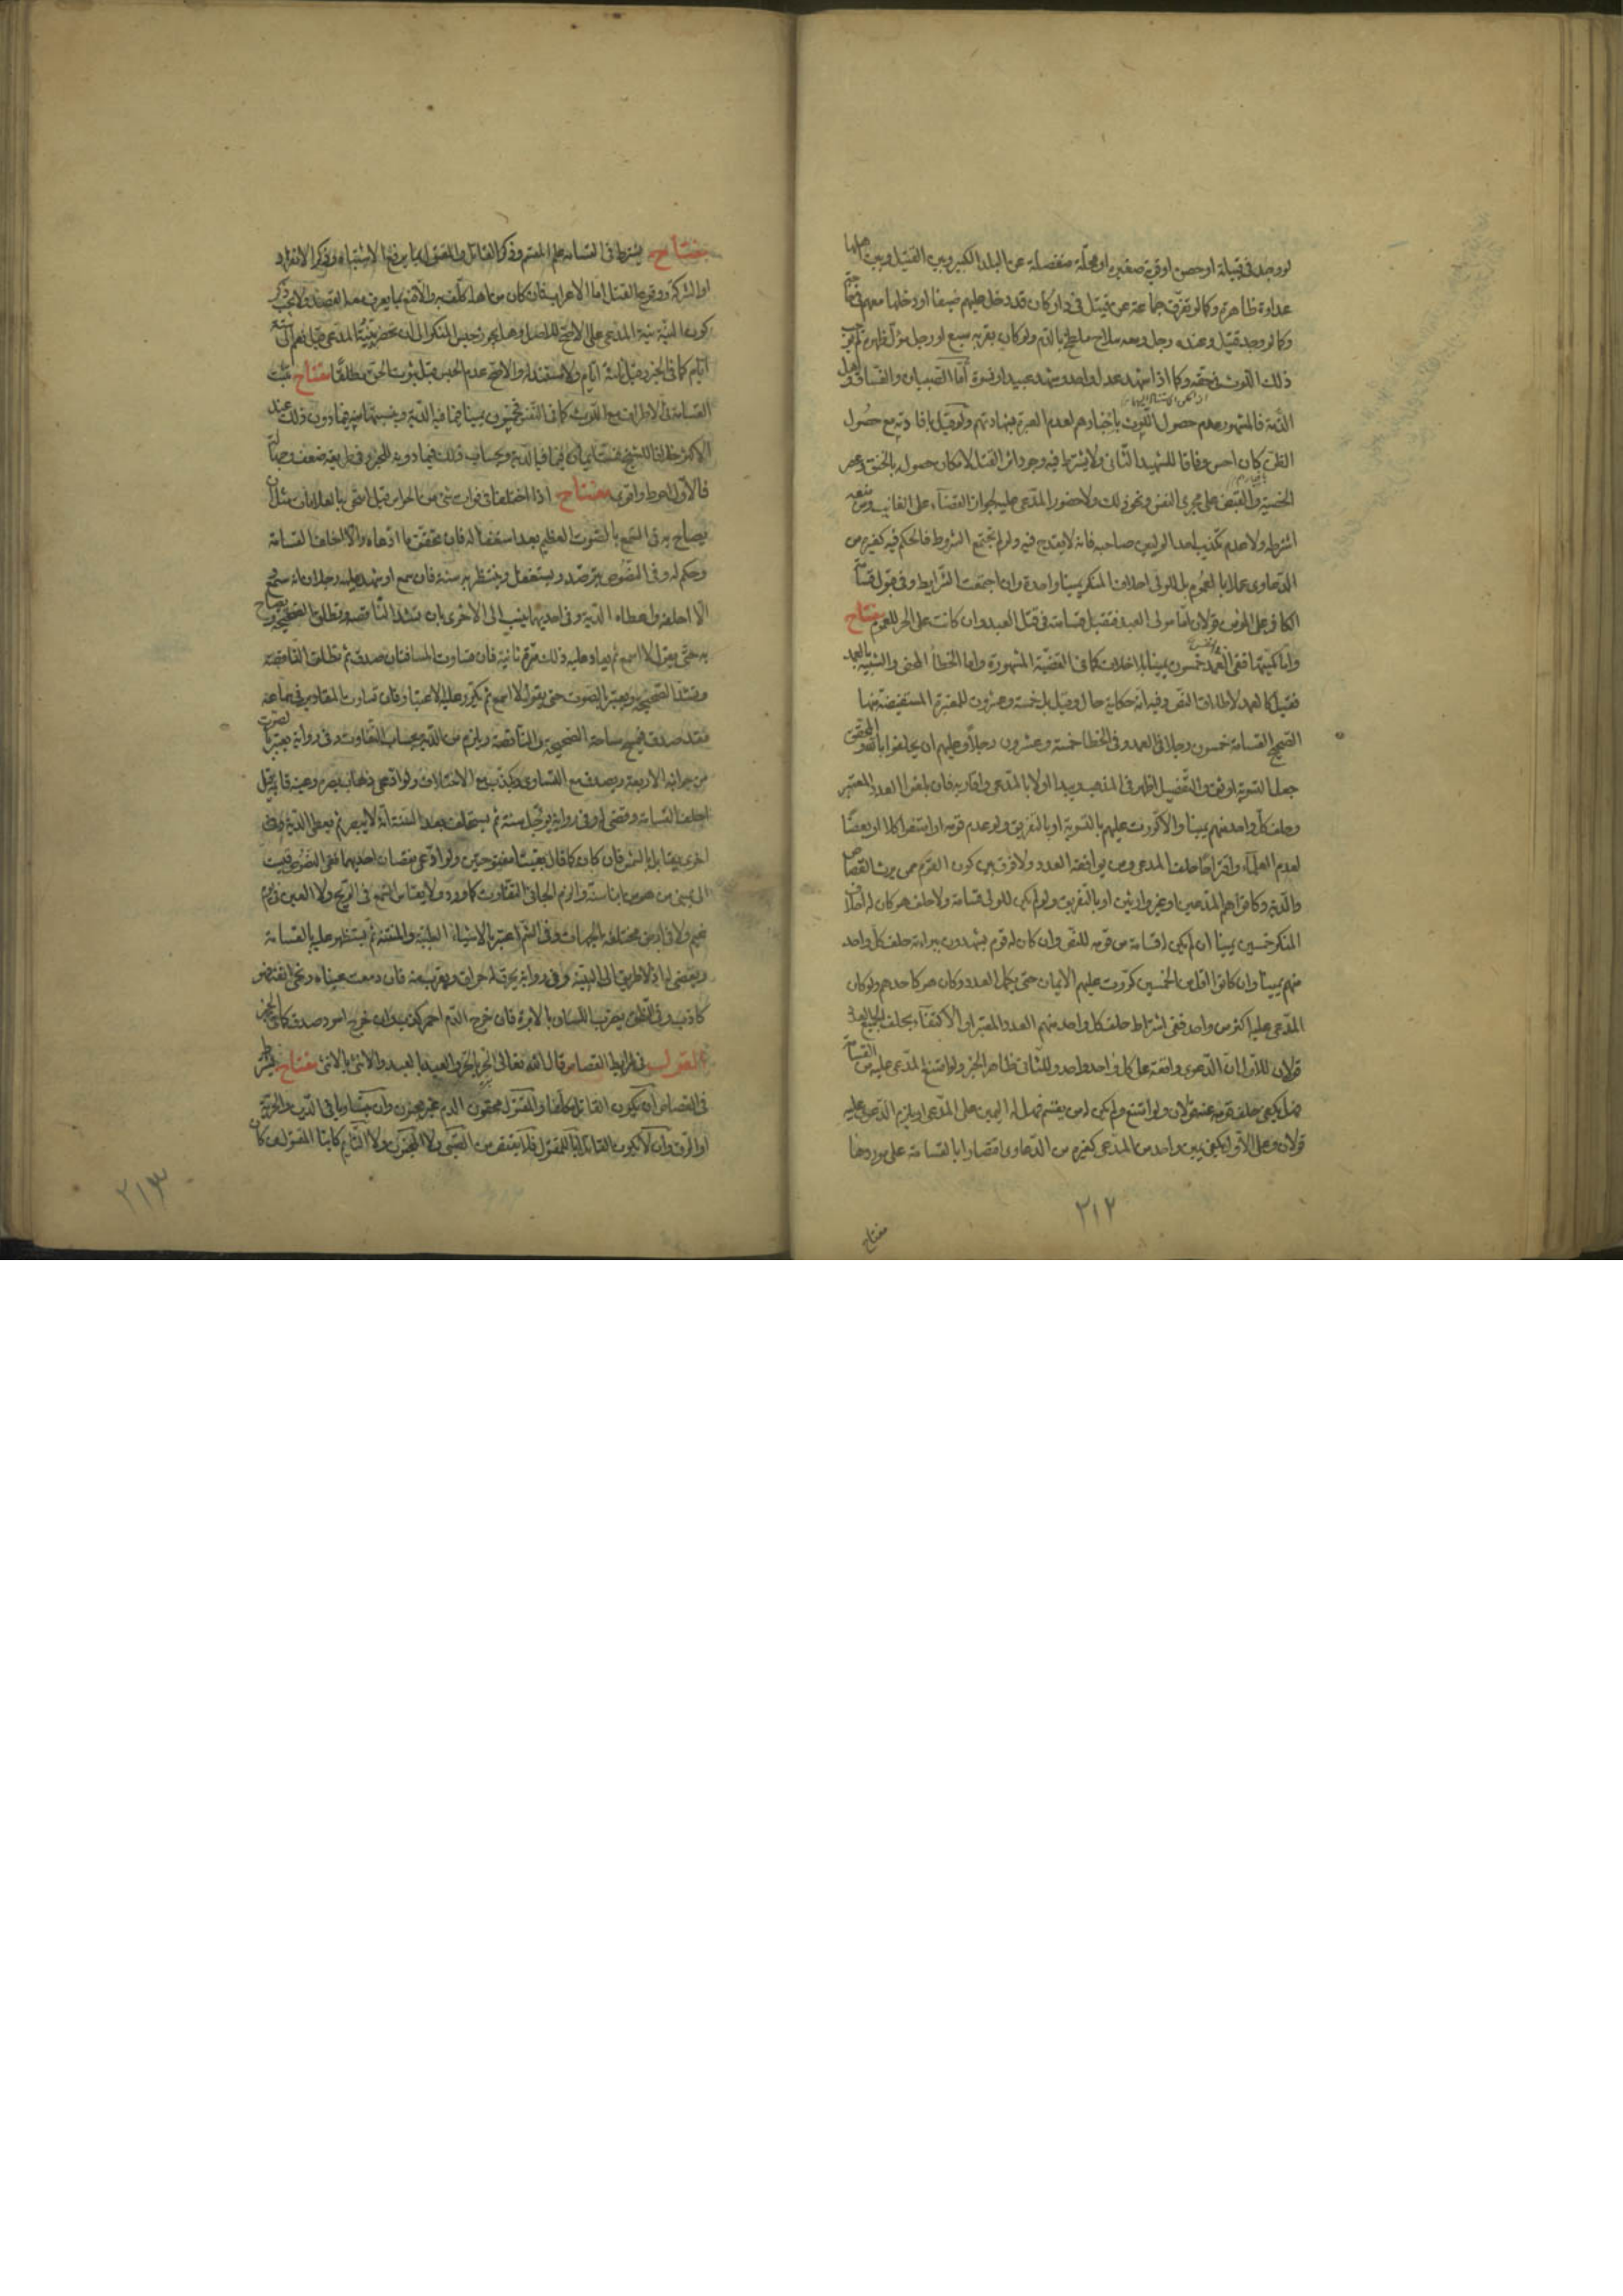 لو وجد فى قبيلة او حصن او قرية صغيرة او محلّة منفصلة عن البلد الكبير وبين القتيل وبين اهلها
عداوة ظاهرة وكما لو تفرّق جماعة عن قتيل فى دار كان قد دخل عليهم ضيفا او دخلها معهم فى
وكما لو وجد قتيل وعنده رجل ومعه سلاح ملطّخ بالدّم ولو كان بقربه سبع او رجل مولّ ظهره لم
ذلك اللّوث فى حقّه وكما اذا شهد عدل واحد او شهد عبيد او نسوة أمّا الصّبيان والفسّاق واهل
الذّمّة فالمشهور عدم حصول اللّوث باخبارهم لعدم العبرة بشهادتهم ولو قيل بافادته مع حصول
الظنّ كان احسن وفاقا للشهيد الثّانى ولا يشترط فيه وجود اثر القتل لامكان حصوله بالخنق وعصر
الخصية والقبض على مجرى النفس ونحو ذلك ولا حضور المدّعى عليه لجواز القضاء على الغائب ومن منعه
اشترطه ولا عدم تكذيب احد الوليين صاحبه فانه لا يقدح فيه ولو لم تجتمع الشّروط فالحكم فيه كغيره من
الدّعاوى عملا بالعموم بل للولى احلاف المنكر يمينا واحدة وان اجتمعت الشّرايط وفى قبول قسامة
الكافر على المؤمن قولان امّا مولى العبد فتقبل قسامته فى قتل العبد وان كانت على الحرّ للعموم مفتاح
وامّا كميّتها ففى العمد خمسون يمينا بلا خلاف كما فى القضيّة المشهورة وامّا الخطأ المحض والشّبيه بالعمد
فقيل كالعمد لاطلاق النّصّ وفيه انه حكاية حال وقيل بل خمسة وعشرون للمعتبرة المستفيضة منها
الصّحيح القسامة خمسون رجلا فى العمد وفى الخطا خمسة وعشرون رجلا وعليهم ان يحلفوا بالله والمحقق
جعل التسوية اوثق والتّفصيل اظهر فى المذهب ويبدا اولا بالمدّعى واقاربه فان بلغوا العدد المعتبر
وحلف كلّ واحد منهم يمينا والا كررت عليهم بالتسوية او بالتفريق ولو عدم قومه او امتنعوا كلا او بعضا
لعدم العلم او اقتراحا حلف المدعى ومن يوافقه العدد ولا فرق بين كون القوم ممن يرث القصاص
والدّية وكانوا هم المدّعين او غير وارثين او بالتفريق ولو لم يكن للولى قسامة ولا حلف هو كان له احلاف
المنكر خمسين يمينا ان لم يكن له قسامة من قومه للنّصّ وان كان له قوم يشهدون ببراءته حلف كلّ واحد
منهم يمينا وان كانوا اقل من الخمسين كررت عليهم الايمان حتى يكمل العدد وكان هو كاحدهم ولو كان
المدّعى عليه اكثر من واحد ففى اشتراط حلف كلّ واحد منهم العدد المعتبر او الاكتفاء بحلف الجميع العدد
قولان للاول انّ الدّعوى واقعة على كلّ واحد واحد وللثّانى ظاهر الخبر ولو امتنع المدّعى عليه من القسامة
فهل يكفى حلف قومه عنه قولان ولو امتنع ولم يكن له من يقسم فهل له ردّ اليمين على المدّعى او يلزم الدّعوى عليه
قولان وعلى الاول يكفى يمين واحد من المدّعى كغيره من الدّعاوى اقتصارا بالقسامة على موردها
٢١٢
مفتاح
مفتاح يشترط فى القسامة علم المقسم وذكر القاتل والمقتول بما يرفع الاشتباه وذكر الانفراد
او الشركة ونوع القتل امّا الاعراب فان كان من اهله كلّف به والا قنع بما يعرف معه القصد ولا يجب ذكر
كون النيّة نيّة المدعى على الاصحّ للاصل وهل يجوز حبس المنكر الى ان تحضر بيّنة المدّعى قيل نعم الى ستة
ايّام كما فى الخبر وقيل ثلثة ايّام ولا مستند له والاصحّ عدم الحبس قبل ثبوت الحقّ مطلقا مفتاح تثبت
القسامة فى الاطراف مع اللّوث كما فى النّفس خمسون يمينا فيما فيه الدّية وبنسبتها منه فيما دون ذلك عند
الاكثر خلافا للشيخ فستّ ايمان فيما فيه الدّية وبحساب ذلك فيما دونه للخبر وفى طريقه ضعف وجهالة
فالاول احوط واقرب مفتاح اذا اختلفا فى فوات شئ من الحواس قبل
يصاح به فى السّمع بالصّوت العظيم بعد استغفاله فان تحقق ما ادّعاه والا احلف القسامة
وحكم له وفى النّصوص يترصّد ويستغفل وينتظر به سنة فان سمع او شهد عليه رجلان انه سمع
الا احلفه واعطاه الدّية وفى احديهما ينسب الى الاخرى بان تشدّ النّاقصة وتطلق الصّحيحة ويصاح
به حتى يقول لا اسمع ثم يعاد عليه ذلك مرّة ثانية فان تساوت المسافتان صدق ثم تطلق النّاقصة
وتشدّ الصّحيحة ويعتبر بالصوت حتى يقول لا اسمع ثم يكرّر عليه الاعتبار فان تساوت المقادير فى سماعه
فقد صدق فيمسح مساحة الصّحيحة والنّاقصة ويلزم من الدّية بحساب التّفاوت وفى رواية يعتبر بالصوت
من جوانبه الاربعة ويصدق مع التساوى ويكذب مع الاختلاف ولو ادّعى ذهاب بصره وعينه قائمة قيل
احلف القسامة وقضى له وفى رواية يؤجّل سنة ثم يستحلف بعد السّنة انه لا يبصر ثم يعطى الدّية وفى
اخرى يقابل بالشمس فان كان كما قال بقيتا مفتوحتين ولو ادّعى نقصان احديهما ففى النّصوص قيست
ولا يقاس السّمع فى الرّيح ولا العين فى يوم
غيم ولا فى ارض مختلفة الجهات وفى الشّمّ اعتبر بالاشياء الطيّبة والمنتنة ثم يستظهر عليه بالقسامة
ويقضى له اذ لا طريق الى البيّنة وفى رواية يحرق له حراق ويقرب منه فان دمعت عيناه ونحى انفه فهو
كاذب وفى النّطق يضرب اللّسان بالابرة فان خرج الدّم احمر كذب وان خرج اسود صدق كما فى الخبر
القول فى شرايط القصاص قال الله تعالى الحرّ بالحرّ والعبد بالعبد والانثى بالانثى مفتاح يشترط
فى القصاص ان يكون القاتل مكلّفا والمقتول محقون الدم غير مجنون وان يتساويا فى الدّين والحريّة
او الرّق وان لا يكون القاتل ابا للمقتول فلا يقتصّ من الصّبى ولا المجنون ولا النّايم كائنا المقتول من كان
٢١٣